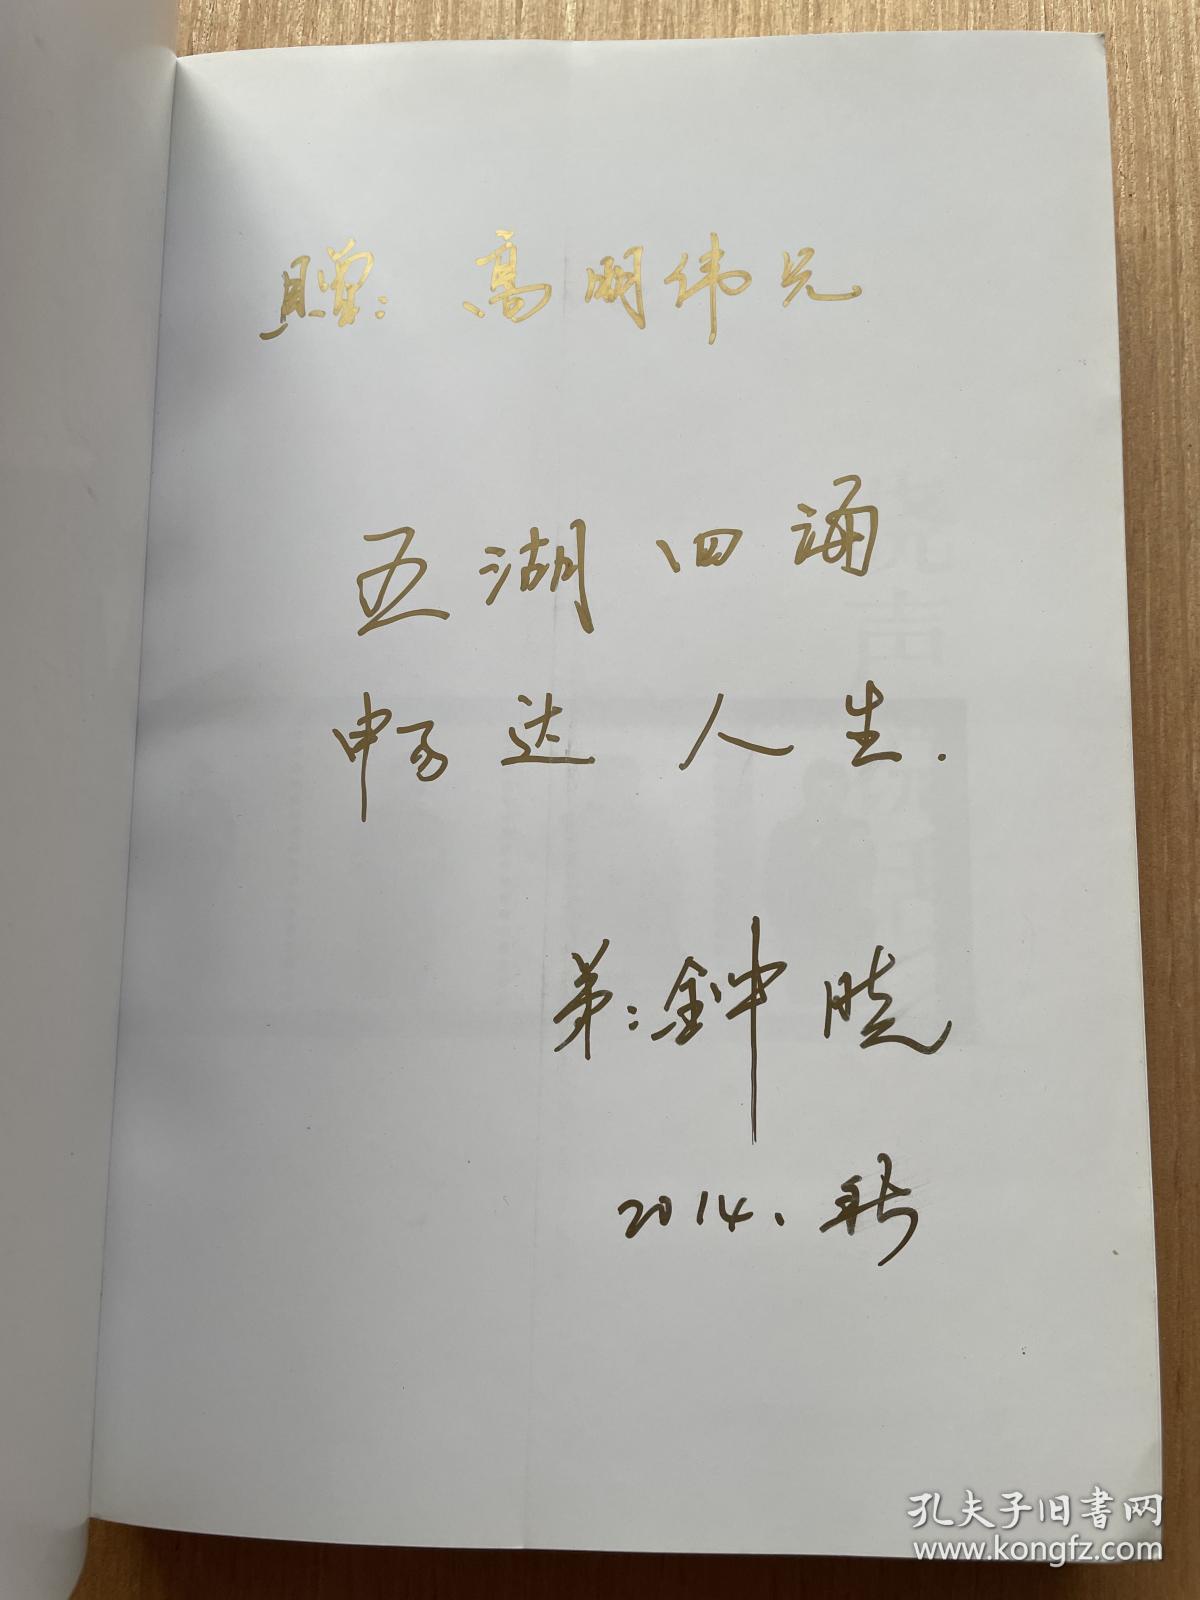 赠：高明伟兄
五湖四诵
畅达人生.
弟：鈡晓
2014.
声
孔夫子旧书网
www.kongfz.com